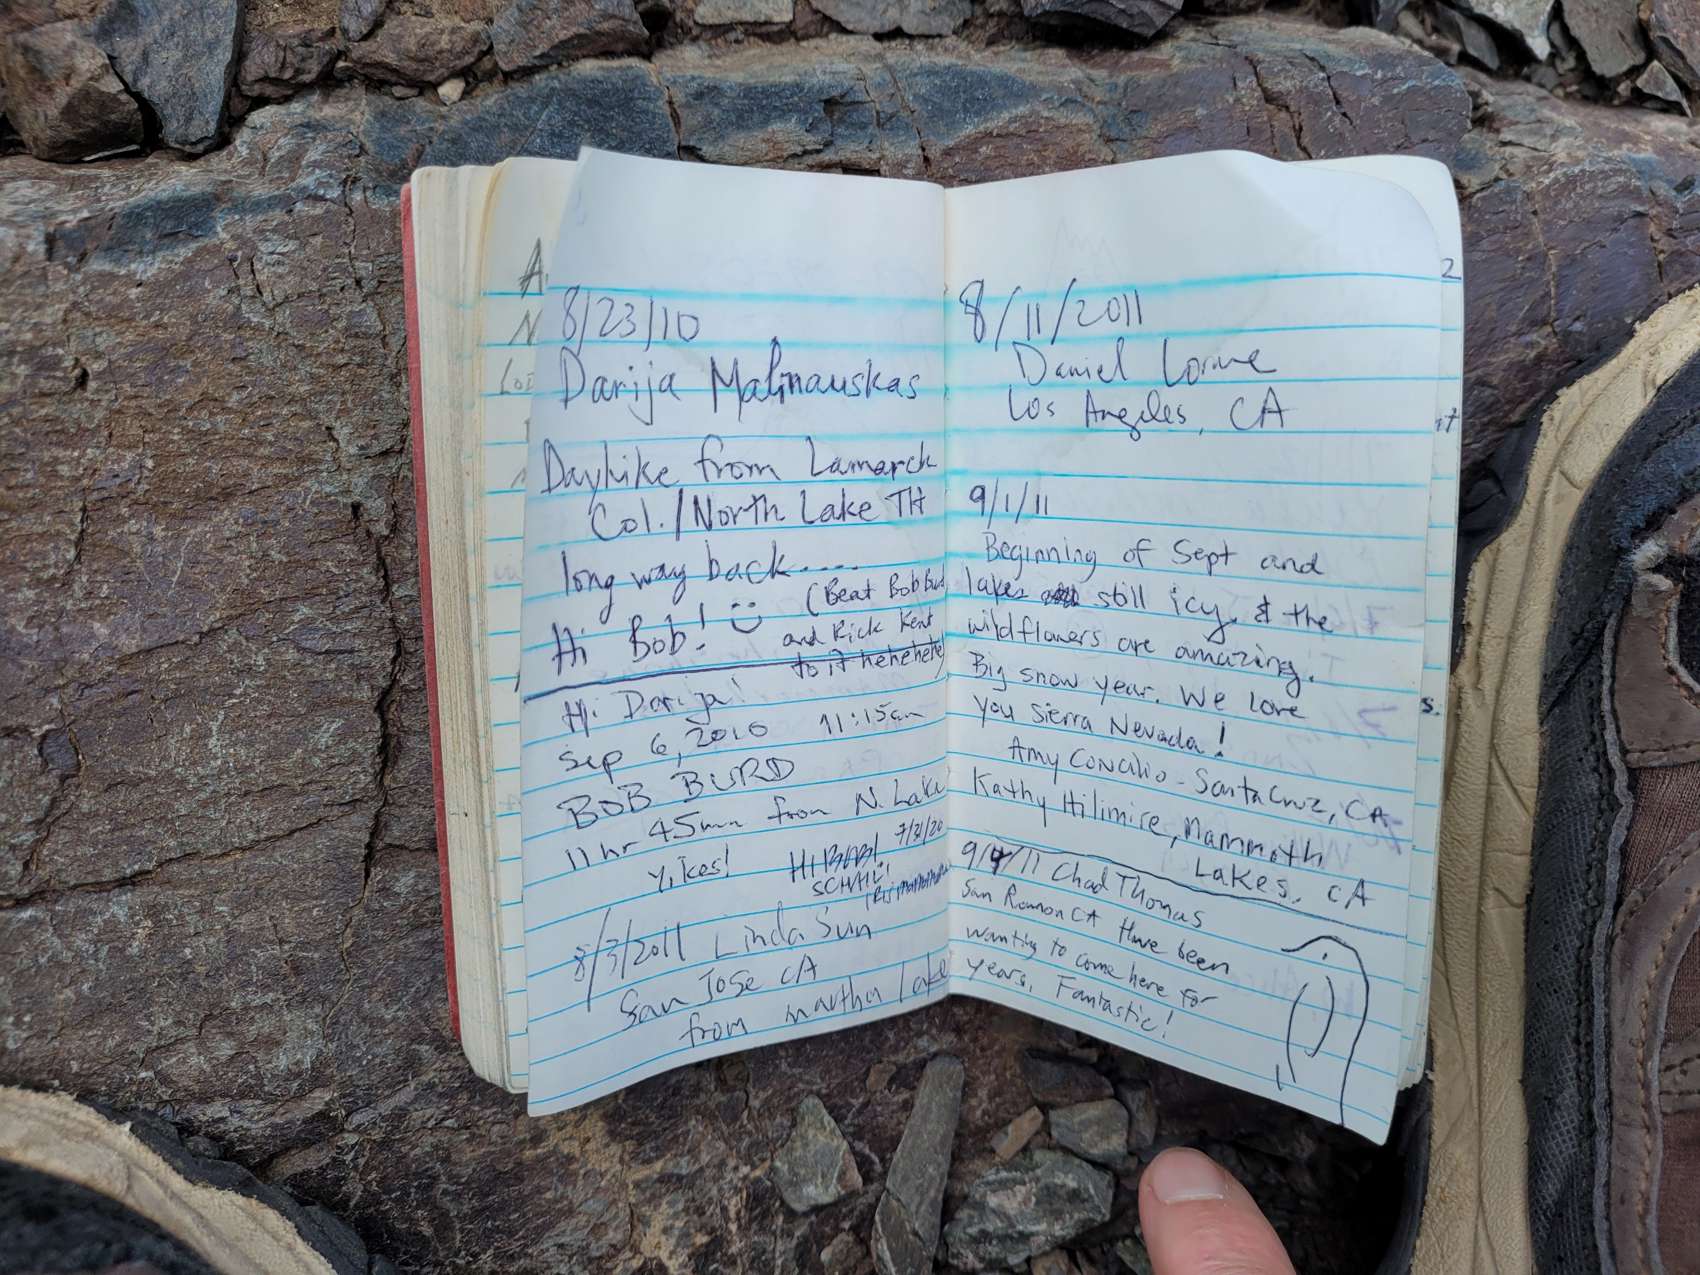 8/23/10
Darija Malinauskas
Dayhike from Lamarck
Col./North Lake TH
long way back....
Hi Bob! (Beat Bob Burd
and Rick Kent
to it hehehehe)
Hi Darija!
Sep 6, 2010 11:15am
BOB BURD
11 hr 45mn from N. Lake
Yikes!
HI BOB! 7/31/20
8/3/2011 Linda Sun
San Jose CA
from martha lake
8/11/2011
Daniel
Los Angeles, CA
9/1/11
Beginning of Sept and
lakes still icy & the
wildflowers are amazing.
Big snow year. We love
you Sierra Nevada!
Amy Concilio - Santa Cruz, CA
Kathy Hilimire, Mammoth
Lakes, CA
9/4/11 Chad Thomas
San Ramon CA Have been
wanting to come here for
years. Fantastic!